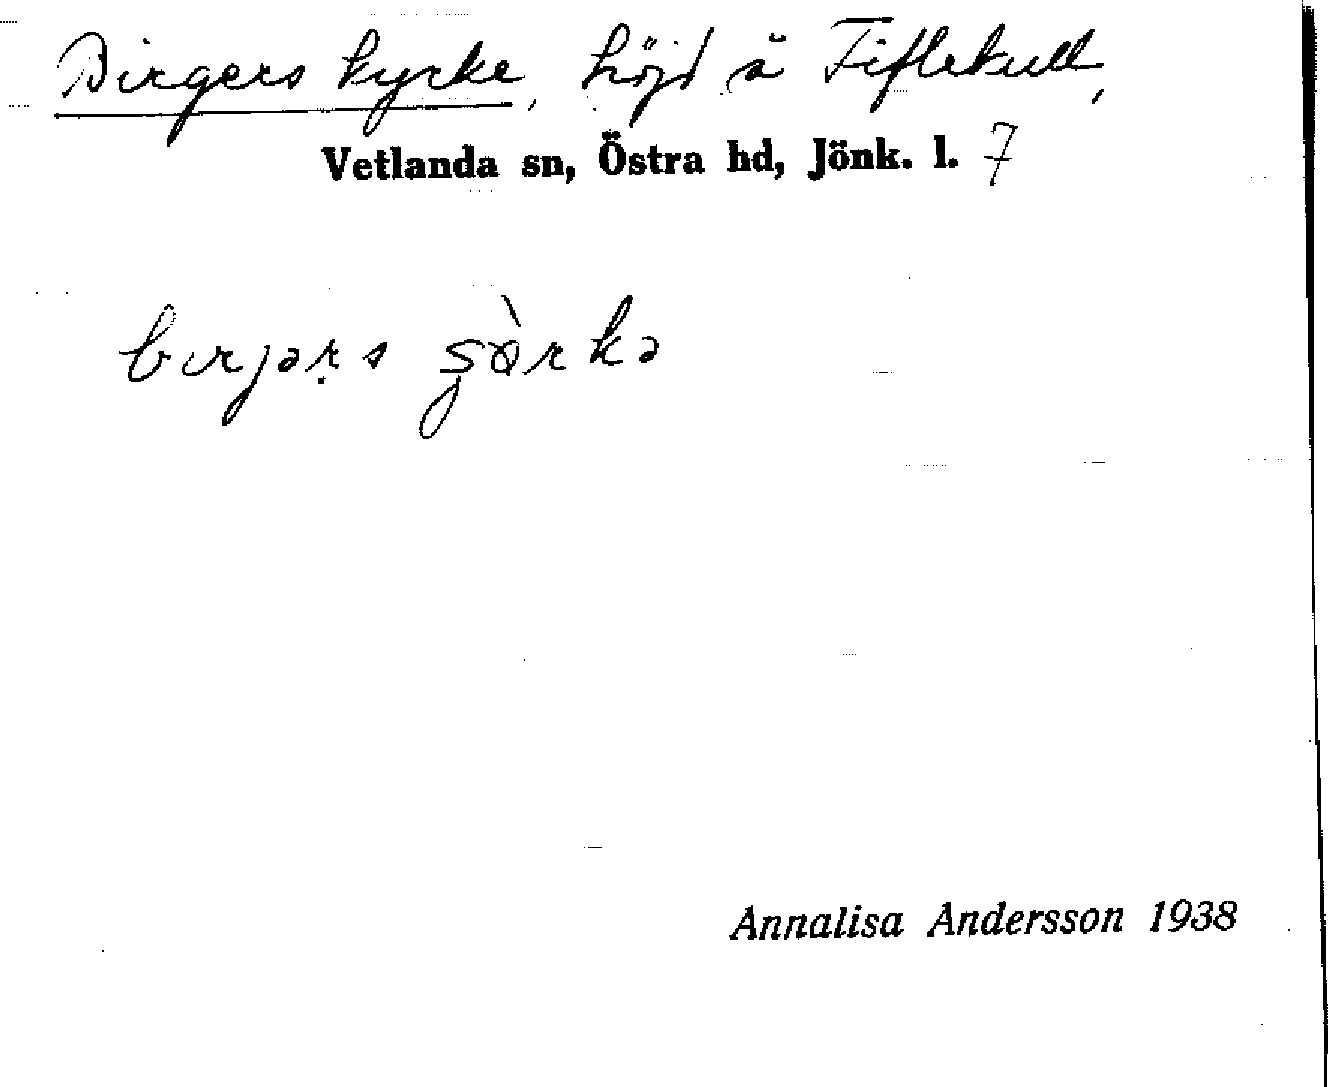 Birgers kyrke, höjd å Fiflekull,
Vetlanda sn, Östra hd, Jönk. l. 7
Annalisa Andersson 1938